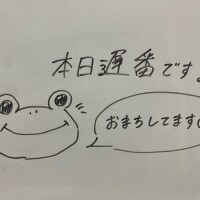 本日遅番です。
おまちしてます